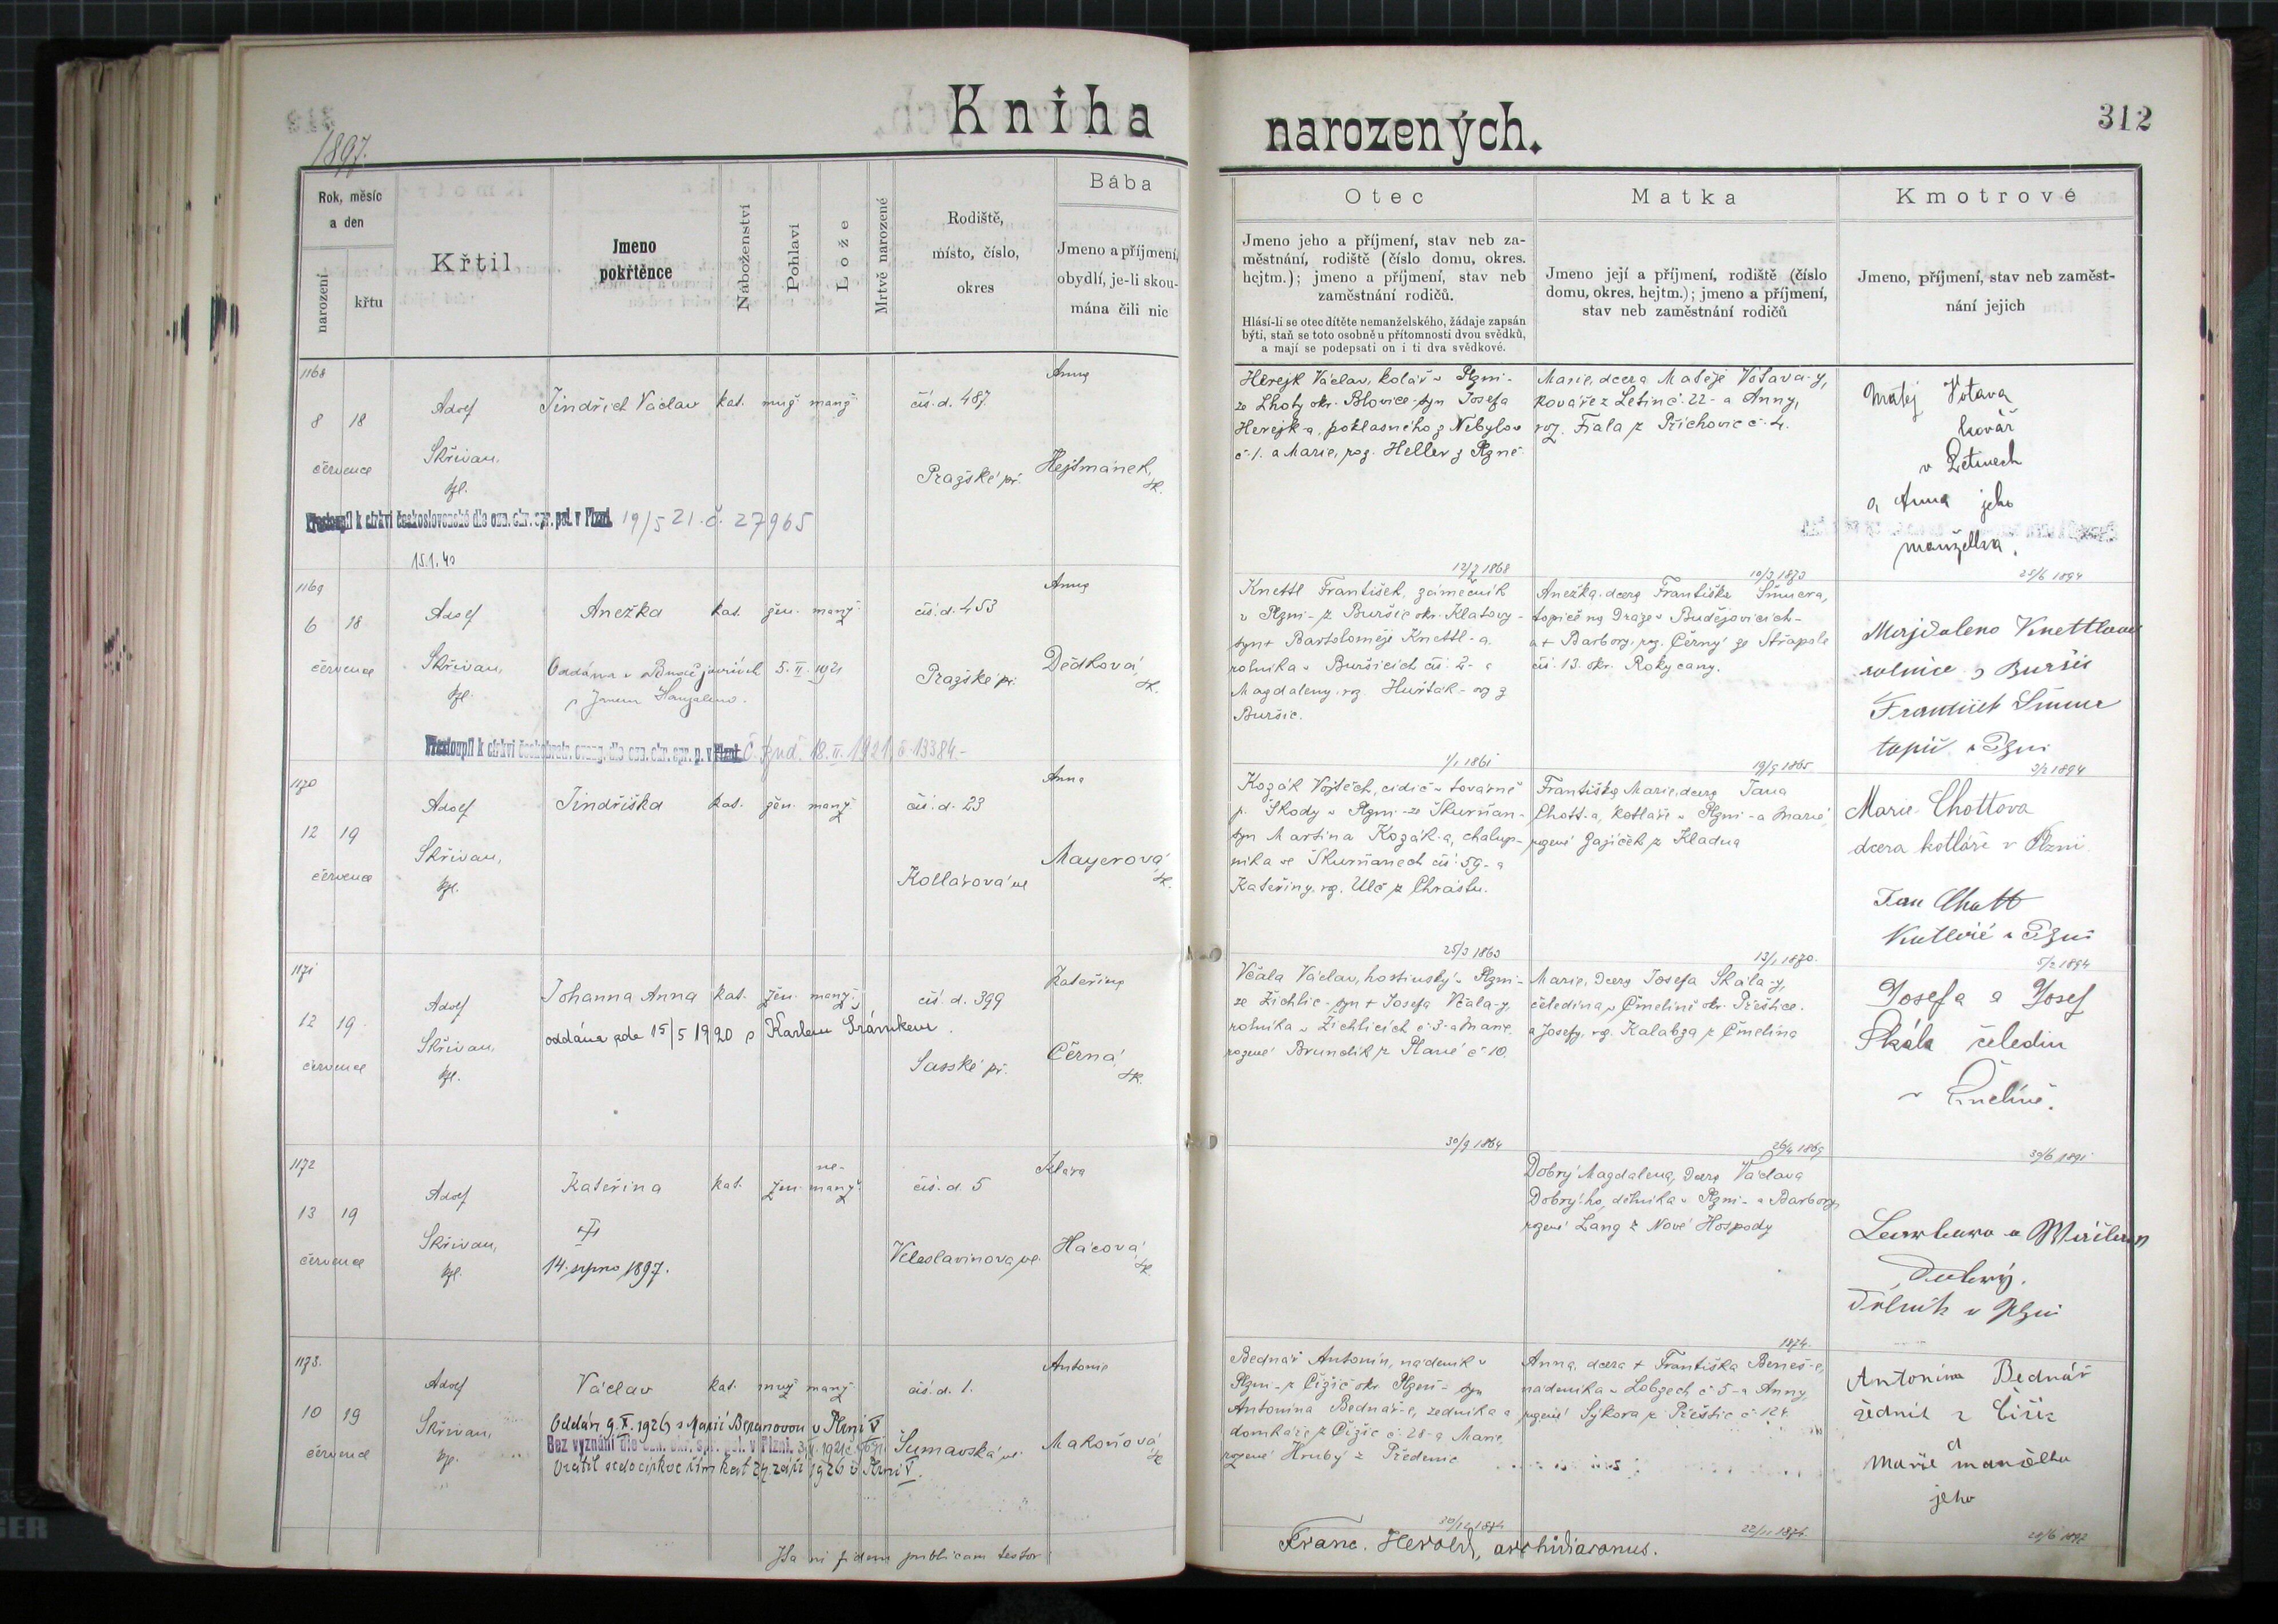 Kniha
narozených.
312
1897.
Rok, měsíc
a den
narození
křtu
Křtil
Jmeno
pokřtěnce
Náboženství
Pohlaví
Lože
Mrtvě narozené
Rodiště,
místo, číslo,
okres
Bába
Jmeno a příjmení,
obydlí, je-li skou-
mána čili nic
Otec
Jmeno jeho a příjmení, stav neb za-
městnání, rodiště (číslo domu, okres.
hejtm.); jmeno a příjmení, stav neb
zaměstnání rodičů.
Hlásí-li se otec dítěte nemanželského, žádaje zapsán
býti, staň se toto osobně u přítomnosti dvou svědků,
a mají se podepsati on i ti dva svědkové.
Matka
Jmeno její a příjmení, rodiště (číslo
domu, okres. hejtm.); jmeno a příjmení,
stav neb zaměstnání rodičů
Kmotrové
Jmeno, příjmení, stav neb zaměst-
nání jejich
1168
8 18
července
Adolf
Skřivan,
kpl.
Jindřich Václav
kat. muž. manž.
čís. d. 487
Pražské př.
Anna
Hejtmánek,
zk.
Herejk Václav, kolář v Plzni -
ze Lhoty okr. Blovice - syn Josefa
Herejk-a, poklasného z Nebylov
č. 1. a Marie, roz. Heller z Plzně
Marie, dcera Matěje Votava-y,
kováře z Letin č. 22 - a Anny,
roz. Fiala z Příchovic č. 4.
Matěj Votava
kovář
v Letinech
a Anna jeho
manželka.
Přestoupil k církvi československé dle ozn. okr. spr. pol. v Plzni. 19/5 21. č. 27965
15.1.40
12/7 1868
10/3 1873
25/6 1894
1169
6 18
července
Adolf
Skřivan,
kpl.
Anežka
kat. žen. manž.
čís. d. 453
Pražské př.
Anna
Dědková,
zk.
Oddána v Budějovicích 5. II. 1921
s Janem
Knettl František, zámečník
v Plzni - z Buršic okr. Klatovy -
syn + Bartoloměje Knettl-a,
rolníka v Buršicích čís. 2 - a
Magdaleny, roz. Huřťák - z
Buršic.
Anežka, dcera Františka Šmucra,
topiče na dráze v Budějovicích -
a + Barbory, roz. Černý ze Střapole
čís. 13. okr. Rokycany.
rolnice z Buršic
topič v Plzni
Přestoupil k církvi českobratr. evang. dle ozn. okr. spr. p. v Plzni. 18. II. 1921 č. 13384.-
1/1 1861
19/9 1865
3/2 1894
1170
12 19
července
Adolf
Skřivan,
kpl.
Jindřiška
kat. žen. manž.
čís. d. 23
Kollárová ul
Anna
Mayerová,
zk.
Kozák Vojtěch, cidič v továrně
p. Škody v Plzni - ze Skurňan -
syn Martina Kozák-a, chalup-
níka ve Skurňanech čís. 59 - a
Kateřiny, roz. Ulč z Chrástu.
Františka Marie, dcera Jana
Chott-a, kotláře v Plzni - a Marie,
rozené Zajíček z Kladna
Marie Chottova
dcera kotláře v Plzni
Jan Chott
Kotlář v Plzni
25/3 1863
13/1 1870.
5/2 1894
1171
12 19.
července
Adolf
Skřivan,
kpl.
Johanna Anna
kat. žen. manž.
čís. d. 399
Saské př.
Kateřina
Černá,
zk.
oddána zde 15/5 1920 s Karlem
Včala Václav, hostinský v Plzni -
ze Žichlic - syn + Josefa Včala-y,
rolníka v Žichlicích č. 3 - a Marie,
rozené Brundlík z Plané č 10.
Marie, dcera Josefa Skála-y,
čeledína v Čmelíně okr. Přeštice -
a Josefy, roz. Kalabza z Čmelína
Josefa a Josef
Skála čeledín
v Čmelíně.
30/9 1864
26/4 1869
30/6 1891
1172
13 19
července
Adolf
Skřivan,
kpl.
Kateřina
14. srpna 1897.
kat. žen. ne-
manž.
čís. d. 5
Veleslavínova ul.
Klára
Hácová,
zk.
Dobrý Magdalena, dcera Václava
Dobrý-ho, dělníka v Plzni - a Barbory,
rozené Lang z Nové Hospody
Dobrý.
Dělník v Plzni
1874.
1173.
10 19
července
Adolf
Skřivan,
kpl.
Václav
kat. muž. manž.
čís. d. 1.
Šumavská ul
Antonie
Makoňová,
zk
Oddán 9. X. 1926 s Marií Beranovou v Plzni V
Bez vyznání dle ozn. okr. spr. pol. v Plzni.
Vrátil se do církve řím. kat. 27. září 1926 v Plzni V.
Bednář Antonín, nádeník v
Plzni - z Čižic okr. Plzeň - syn
Antonína Bednář-e, zedníka a
domkáře z Čižic č. 28 - a Marie,
rozené Hrubý z Předenic
Anna, dcera + Františka Beneš-e,
nádeníka v Lobzech č 5 - a Anny,
rozené Sýkora z Přeštic č. 124.
Antonína Bednář
zedník z Čižic
a
Marie manželka
jeho
30/12 1874
22/11 1874.
Ita ni fidem publicam testor
Franc. Herold, archidiaconus.